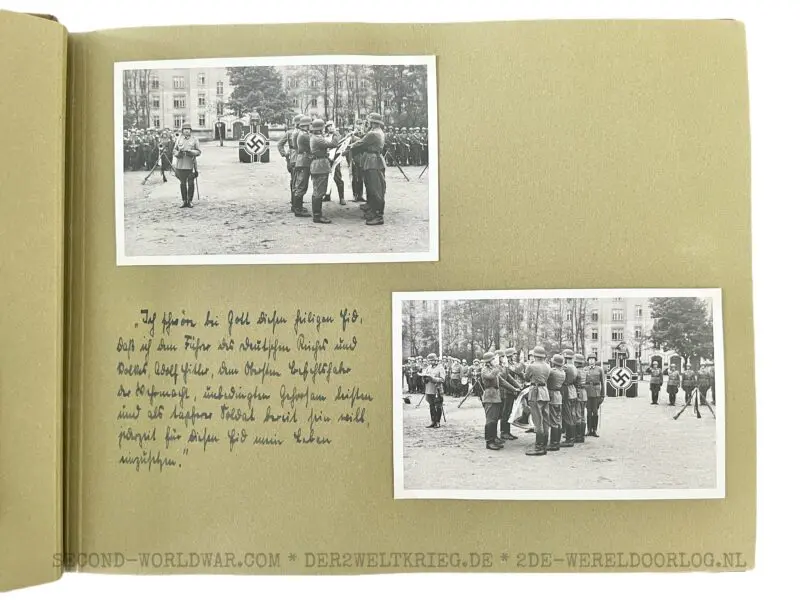 „Ich schwöre bei Gott diesen heiligen Eid,
daß ich dem Führer des Deutschen Reiches und
Volkes, Adolf Hitler, dem Obersten Befehlshaber
der Wehrmacht, unbedingten Gehorsam leisten
und als tapferer Soldat bereit sein will,
jederzeit für diesen Eid mein Leben
einzusetzen."
SECOND-WORLDWAR.COM * DER2WELTKRIEG.DE * 2DE-WERELDOORLOG.NL